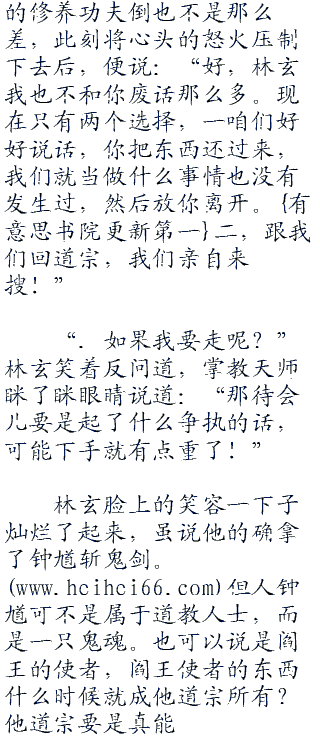 的修养功夫倒也不是那么
差，此刻将心头的怒火压制
下去后，便说：“好，林玄
我也不和你废话那么多。现
在只有两个选择，一咱们好
好说话，你把东西还过来，
我们就当做什么事情也没有
发生过，然后放你离开。{有
意思书院更新第一}二，跟我
们回道宗，我们亲自来
搜！”
“．如果我要走呢？”
林玄笑着反问道，掌教天师
眯了眯眼睛说道：“那待会
儿要是起了什么争执的话，
可能下手就有点重了！”
林玄脸上的笑容一下子
灿烂了起来，虽说他的确拿
了钟馗斩鬼剑。
(www.hcihci66.com)但人钟
馗可不是属于道教人士，而
是一只鬼魂。也可以说是阎
王的使者，阎王使者的东西
什么时候就成他道宗所有？
他道宗要是真能